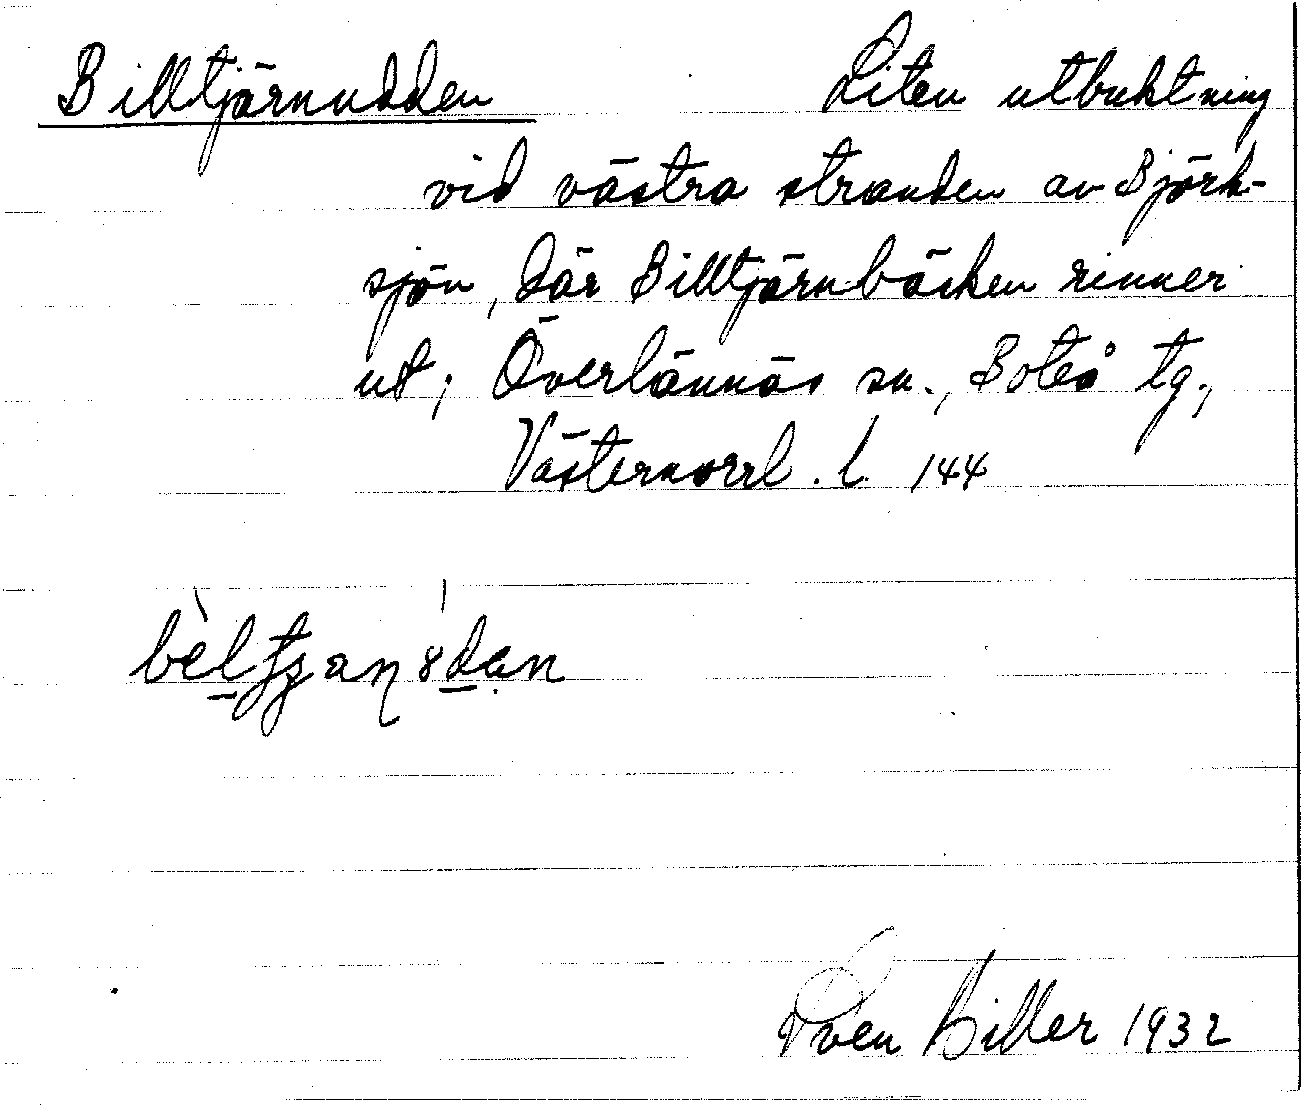 Billtjärnudden Liten utbuktning
vid västra stranden av Björk-
sjön, där Billtjärnbäcken rinner
ut; Överlännäs sn., Boteå tg.,
Västernorrl. l. 144
Sven Biller 1932